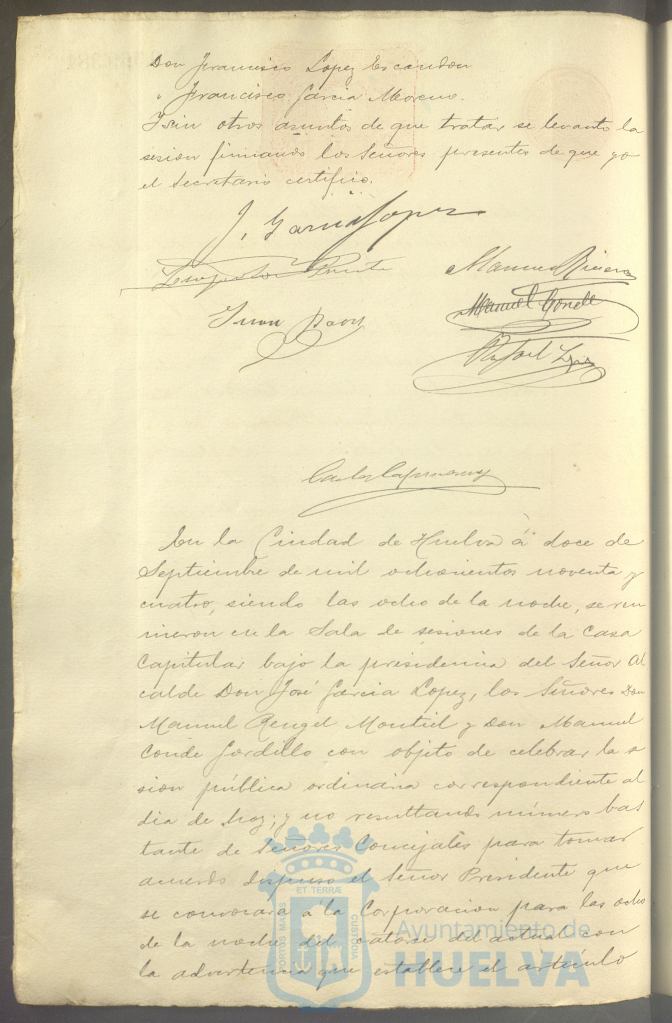 Don Francisco Lopez Escandon
" Francisco Garcia Moreno.
Y sin otros asuntos de que tratar se levantó la
sesion firmando los Señores presentes de que yo
el Secretario certifico.
J. Garcia Lopez
Manuel Rivera
Manuel Conde
Juan
Rafael
En la Ciudad de Huelva á doce de
Septiembre de mil ochocientos noventa y
cuatro, siendo las ocho de la noche, se reu
nieron en la Sala de sesiones de la Casa
Capitular bajo la presidencia del Señor Al
calde Don José Garcia Lopez, los Señores Don
Manuel Rengel Montiel y Don Manuel
Conde Gordillo con objeto de celebrar la se
sion pública ordinaria correspondiente al
dia de hoy; y no resultando número bas
tante de Señores Concejales para tomar
acuerdo dispuso el Señor Presidente que
se convocara á la Corporacion para las ocho
de la noche del catorce del actual con
la advertencia que establece el artículo
PORTUS MARIS
ET TERRÆ
CUSTODIA
Ayuntamiento de
HUELVA